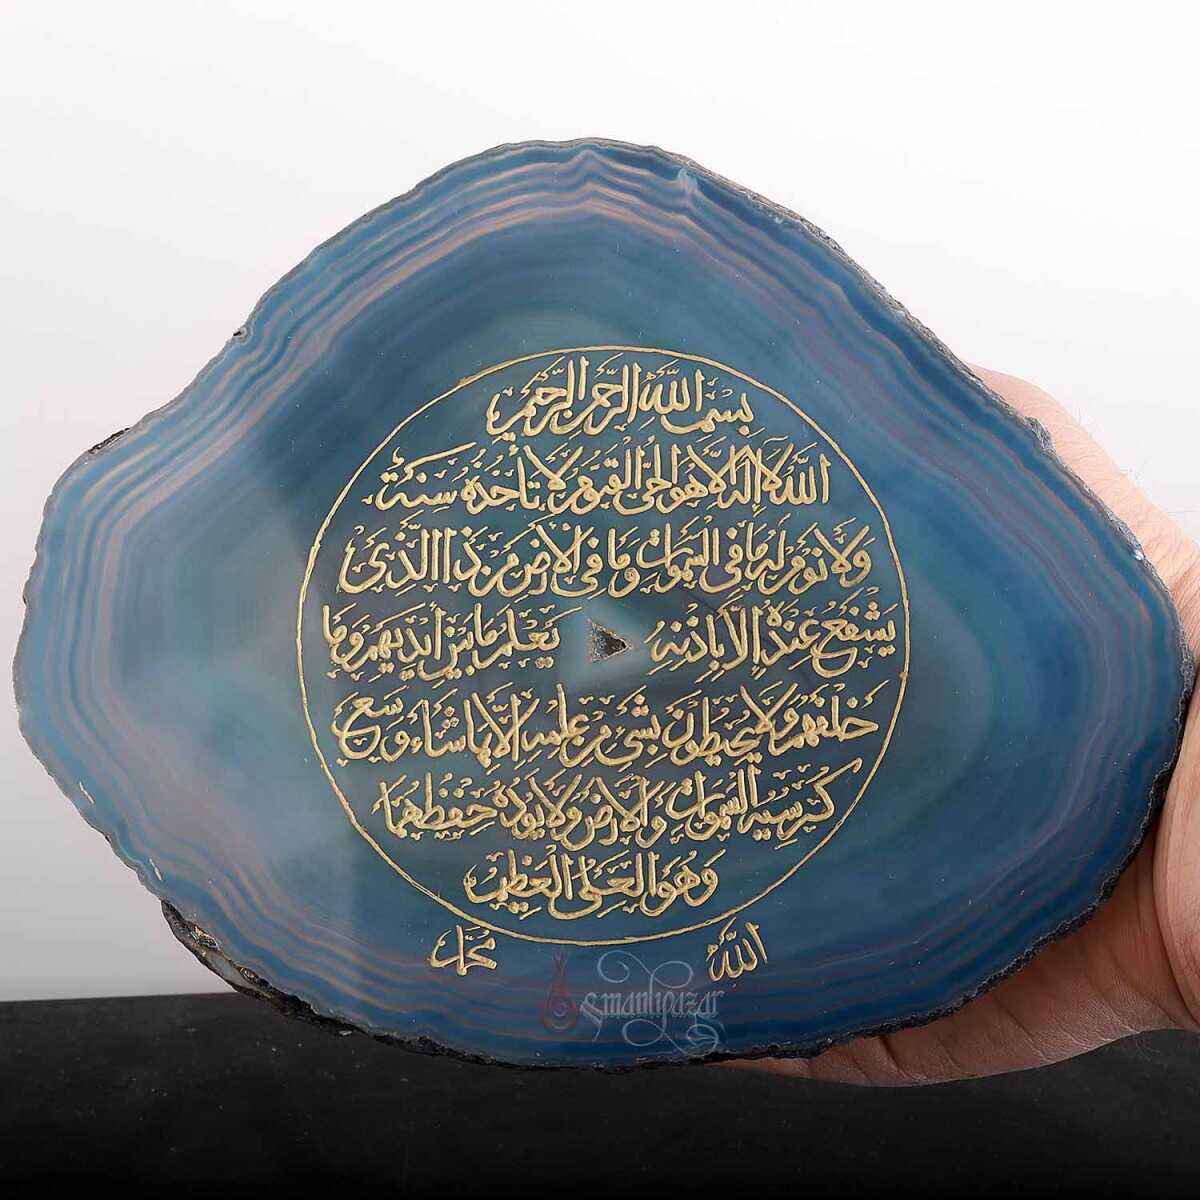 بسم الله الرحمن الرحيم
الله لا إله إلا هو الحي القيوم لا تأخذه سنة
ولا نوم له ما في السموات وما في الأرض من ذا الذي
يشفع عنده إلا بإذنه يعلم ما بين أيديهم وما
خلفهم ولا يحيطون بشيء من علمه إلا بما شاء وسع
كرسيه السموات والأرض ولا يؤده حفظهما
وهو العلي العظيم
الله محمد
Osmanlipazar